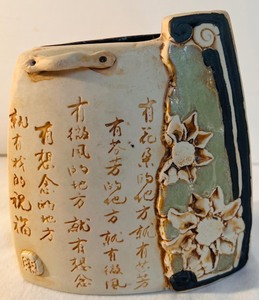 有花草的地方就有芬芳
有芬芳的地方就有微風
有微風的地方就有想念
有想念的地方
就有我的祝福